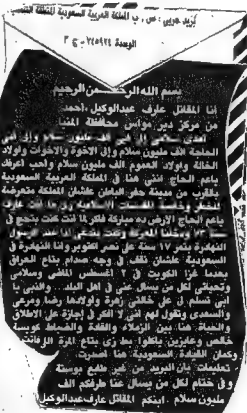 بريد حربي : ص . ب المملكة العربية السعودية
الوحدة ٢٤٥٩٢٤ - ج ٣
بسم الله الرحمن الرحيم
أنا المقاتل عارف عبدالوكيل أحمد
من مركز دير مواس محافظة المنيا
ألف مليون سلام وإلى أمي
الحاجة ألف مليون سلام وإلى الإخوة والأخوات وأولاد
الخالة وأولاد العموم ألف مليون سلام وأحب أعرفك
يا عم الحاج إنني هنا في المملكة العربية السعودية
بالقرب من مدينة حفر الباطن علشان المملكة متعرضة
المقدسات الإسلامية
يا عم الحاج الأرض ده مباركة فاكر لما انت كنت بتحج في
سنة
النهاردة بتمر ١٧ سنة على نصر أكتوبر وأنا النهاردة في
السعودية علشان نقف في وجه صدام بتاع العراق
بعدما غزا الكويت في ٢ أغسطس الماضي وسلامي
وتحياتي لكل من يسأل عني في أهل البلد .. والنبي يا
أمي تسلم لي على خالتي زهرة وأولادها رضا ومرعي
والسعدي وتقول لهم أني لا أفكر في إجازة على الإطلاق
والحياة هنا بين الزملاء والقادة والضباط كويسة
خالص وعايزين ياكلوا بط زي بتاع المرة اللي فاتت
وكمان القيادة السعودية هنا أصدرت
تعليمات بأن البريد من غير طابع بوستة
وفي ختام لكل من يسأل عنا طرفكم ألف
مليون سلام . ابنكم المقاتل عارف عبدالوكيل